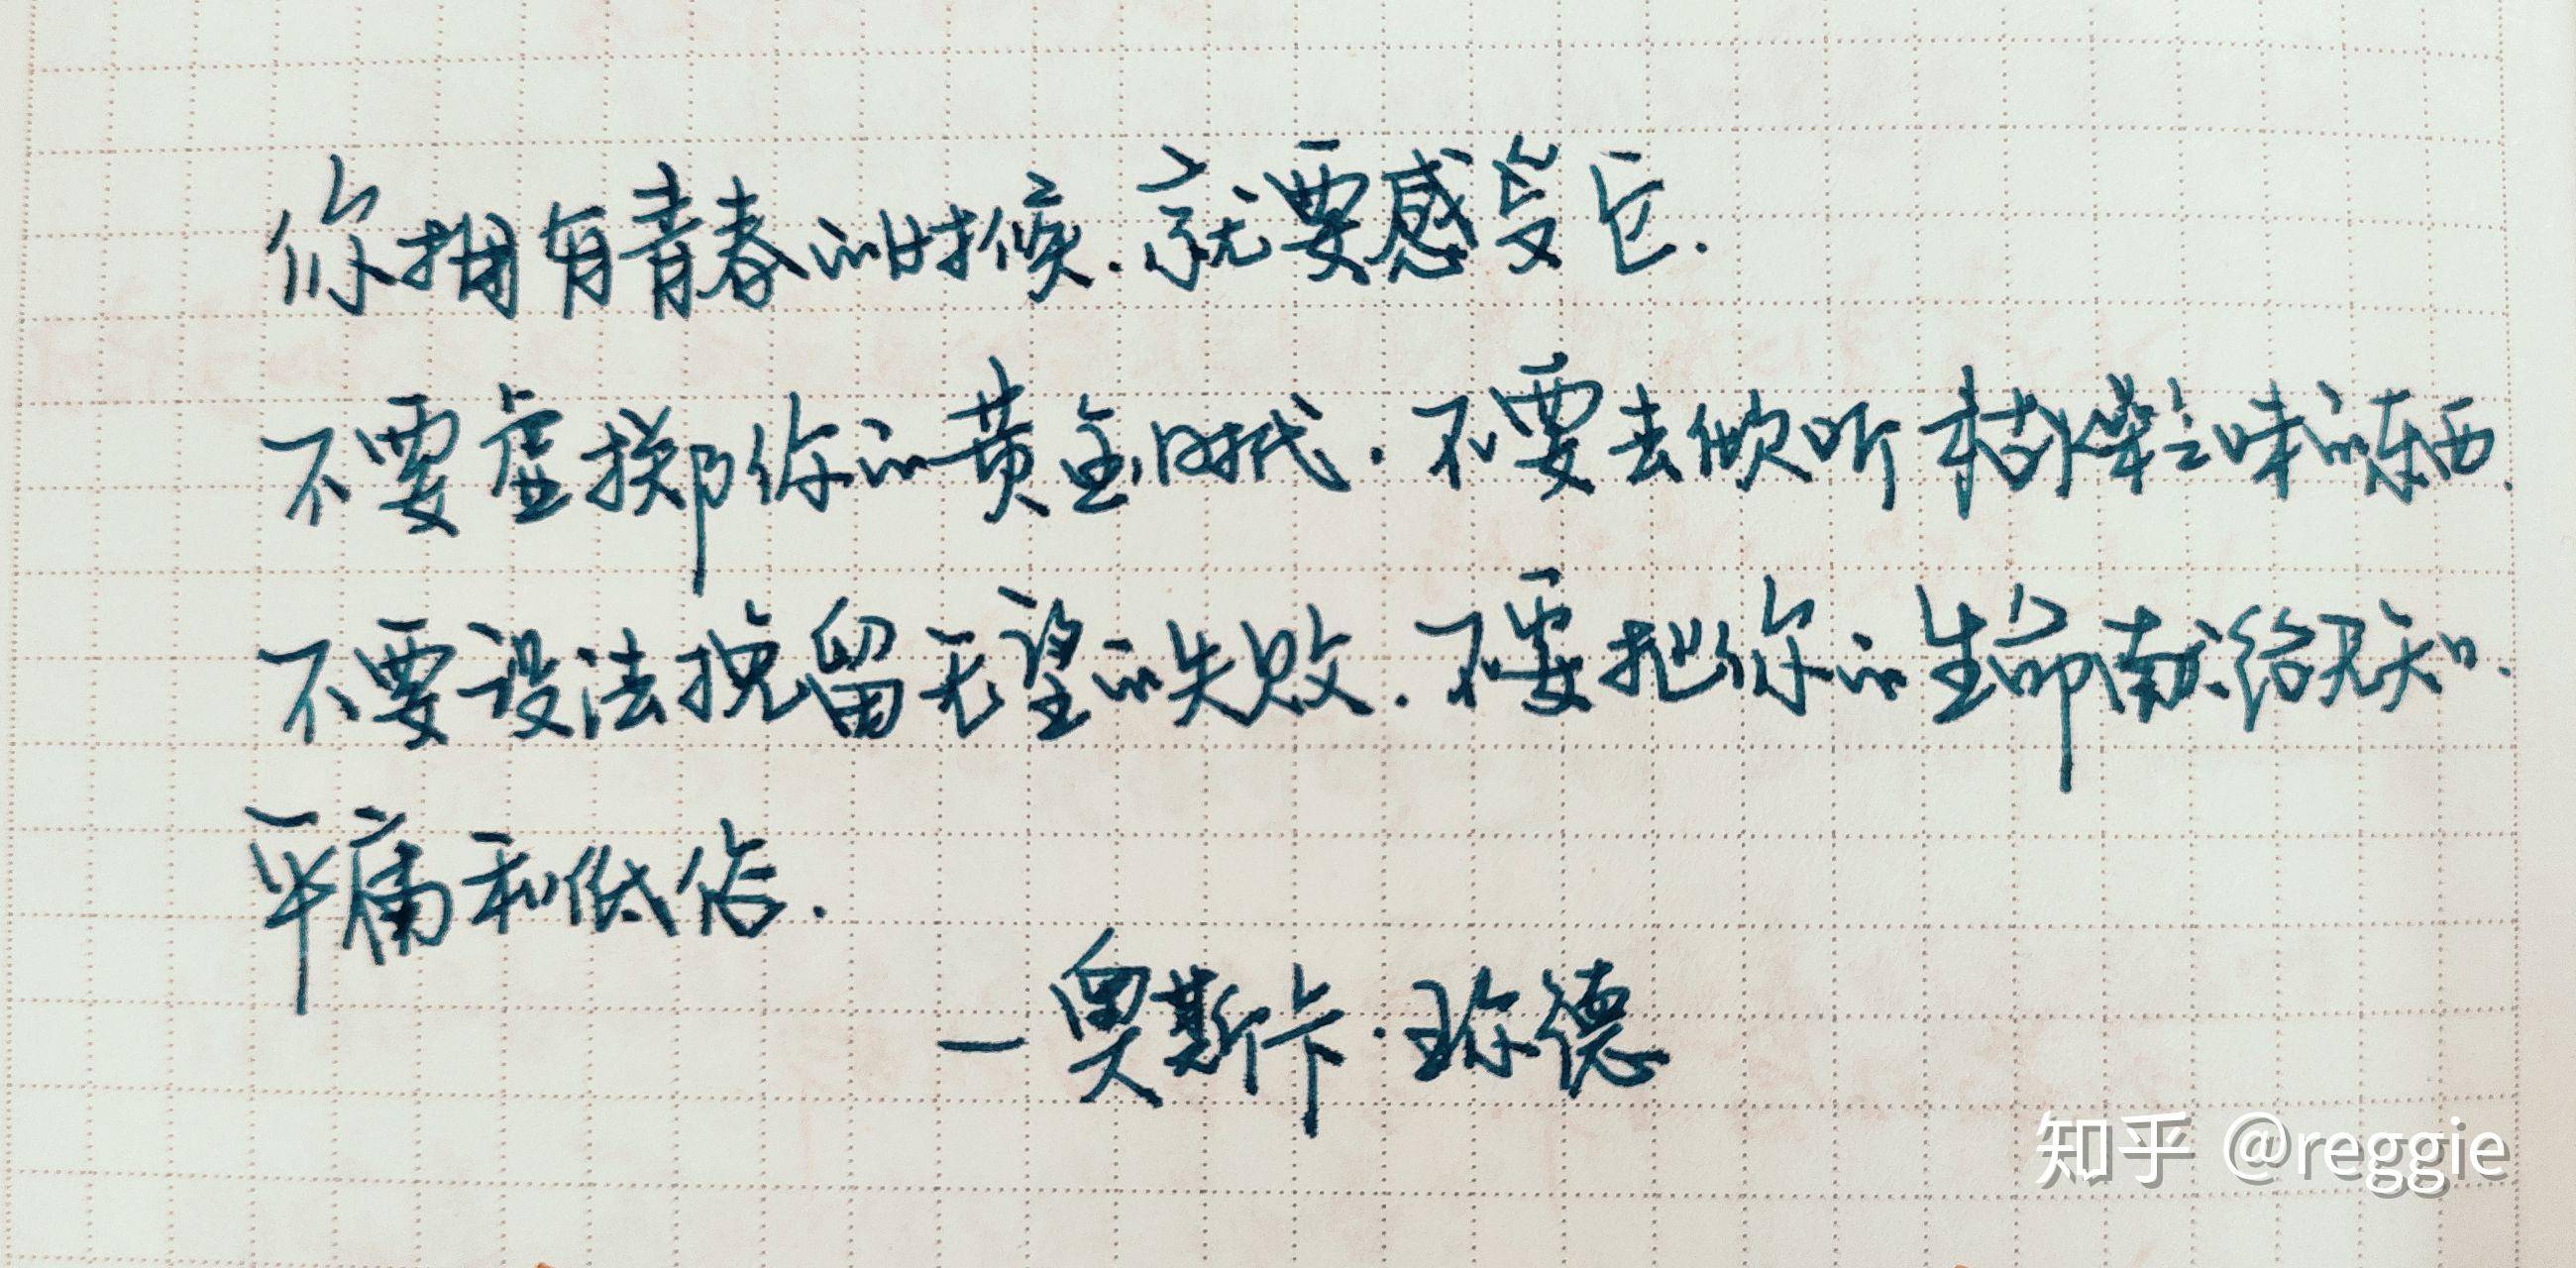 你拥有青春的时候.就要感受它.
不要虚掷你的黄金时代.不要去倾听枯燥乏味的东西.
不要设法挽留无望的失败.不要把你的生命献给无知.
平庸和低俗.
一奥斯卡·王尔德
知乎 @reggie